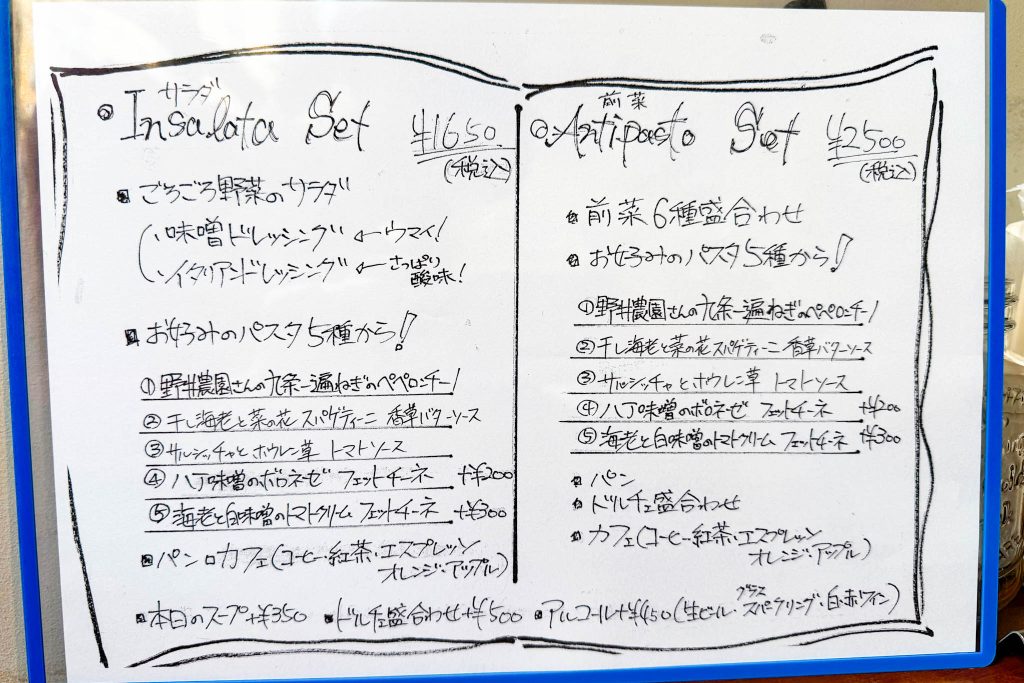 サラダ
Insalata Set ¥1650
(税込)
ごろごろ野菜のサラダ
味噌ドレッシング ←ウマイ!
イタリアンドレッシング ←さっぱり
酸味!
お好みのパスタ5種から!
①野井農園さんの九条一遍ねぎのペペロンチーノ
②干し海老と菜の花 スパゲティーニ 香草バターソース
③サルシッチャとホウレン草 トマトソース
④八丁味噌のボロネーゼ フェットチーネ +¥200
⑤海老と白味噌のトマトクリーム フェットチーネ +¥300
パン カフェ(コーヒー・紅茶・エスプレッソ
オレンジ・アップル)
前菜
Antipasto Set ¥2500
(税込)
前菜6種盛合わせ
お好みのパスタ5種から!
①野井農園さんの九条一遍ねぎのペペロンチーノ
②干し海老と菜の花 スパゲティーニ 香草バターソース
③サルシッチャとホウレン草 トマトソース
④八丁味噌のボロネーゼ フェットチーネ +¥200
⑤海老と白味噌のトマトクリーム フェットチーネ +¥300
パン
ドルチェ盛合わせ
カフェ(コーヒー・紅茶・エスプレッソ
オレンジ・アップル)
本日のスープ+¥350 ドルチェ盛合わせ+¥500 アルコール+¥450(生ビール・グラススパークリング・白・赤ワイン)